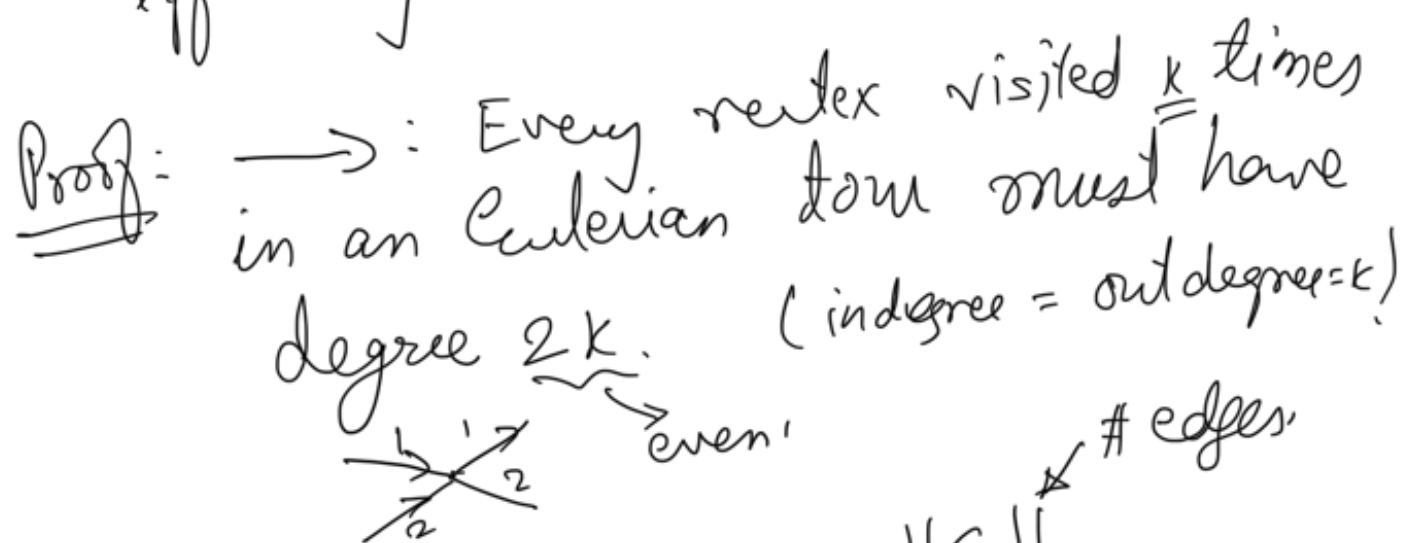 Proof: → : Every vertex visited k times
in an Eulerian tour must have
degree 2k. (indegree = outdegree=k)
even
# edges
1 1 2
2